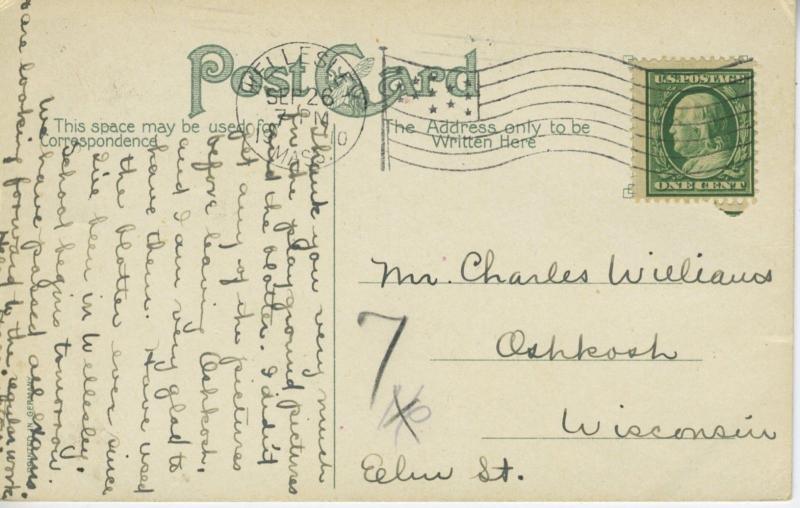 Post Card
WELLESLEY
SEP 26
MASS.
This space may be used for
Correspondence
The Address only to be
Written Here
U.S. POSTAGE
ONE CENT
Thank you very much
for the playground pictures
and the blotter. I didn't
get any of the pictures
before leaving Oshkosh,
and I am very glad to
have them. Have used
the blotter ever since
I've been in Wellesley.
School begins tomorrow.
We have passed all
are looking forward to the regular work.
Mr. Charles Williams
Oshkosh
Wisconsin
Elm St.
7